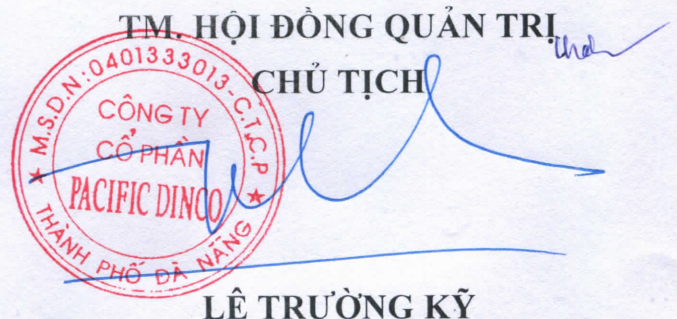 TM. HỘI ĐỒNG QUẢN TRỊ
CHỦ TỊCH
M.S.D.N:0401333013-C.T.C.P
CÔNG TY
CỔ PHẦN
PACIFIC DINCO
THÀNH PHỐ ĐÀ NẴNG
LÊ TRƯỜNG KỸ